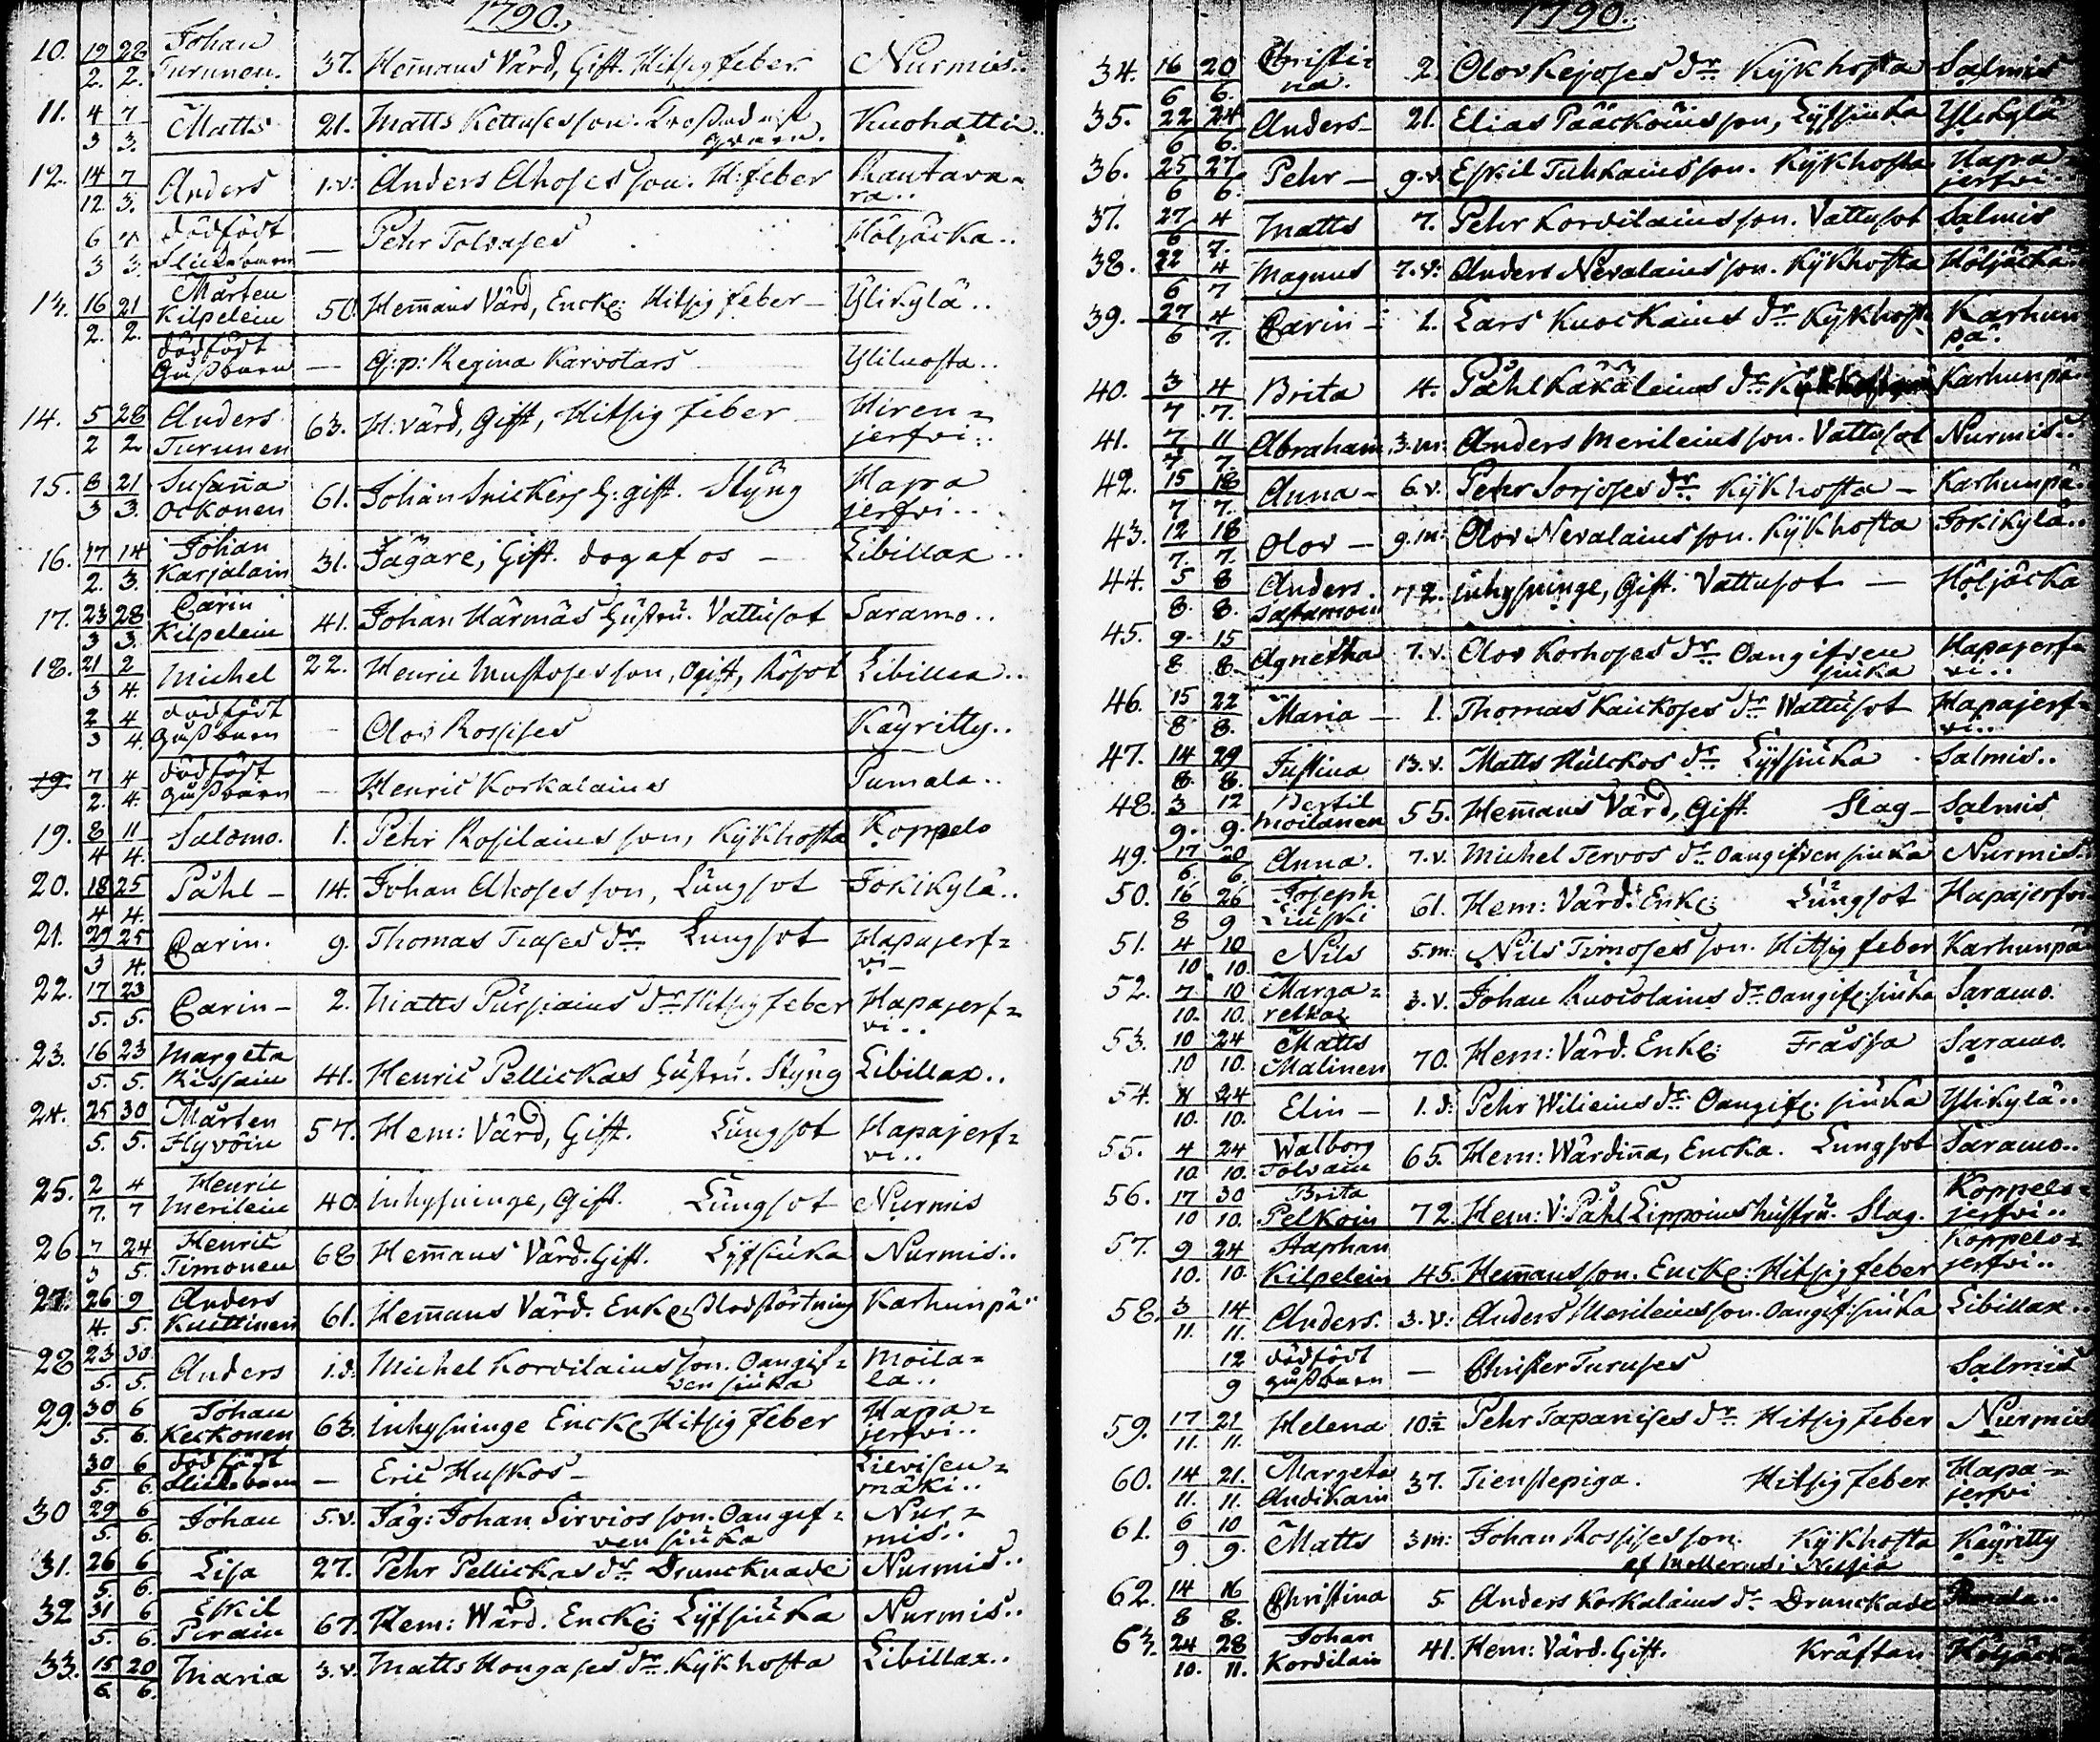 1790.
10. 19/2. 28/2. Johan Turunen. 37. Hem̄ans Värd, Gift. Hitsig feber. Nurmis..
11. 4/3 7/3. Matts 21. Matts Kettuses son. Kuohattia..
12. 14/12. 7/3. Anders 1.v: Anders Ahoses son. H: feber Rautava=
ra..
6/3 7/3. dödfödt flickebarn — Pehr Tolvases Höljäcka..
13. 16/2. 21/2. Mårten Kilpelein 50. Hem̄ans Värd, Enckl: Hitsig feber — Ylikylä..
dödfödt Gåssbarn — Q:p: Regina Karvotars Yliluosta..
14. 5/2 28/2 Anders Turunen 63. H: värd, Gift, Hitsig feber Hiren=
jerfvi..
15. 8/3 21/3. Susan̄a Ockonen 61. Johan Snickers h: gift. Styng Hapa
jerfvi..
16. 17/2. 14/3. Johan Karjalain 31. Jägare, Gift. dog af os — Libillax..
17. 23/3 28/3. Carin Kilpelein 41. Johan Härmäs hustru. Vattusot Saramo..
18. 21/3 2/4. Michel 22. Henric Mustoses son, Ogift, Rösot Libillax..
2/3 4/4. dödfödt Gåssbarn — Olov Rossises Käyritty..
19. 7/2. 4/4. dödfödt gåssbarn — Henric Korkalains Pumala..
19. 8/4 11/4. Salomo. 1. Pehr Rosilains son, Kykhosta Koppelo
20. 18/4 25/4. Påhl — 14. Johan Ahoses son, Lungsot Jokikylä..
21. 29/3 25/4. Carin. 9. Thomas Trases dr Lungsot Hapajerf=
vi —
22. 17/5. 23/5. Carin — 2. Matts Pursiains dr Hitsig feber Hapajerf=
vi..
23. 16/5. 23/5. Margeta Kissain 41. Henric Pellickas hustru. Styng Libillax..
24. 25/5. 30/5. Mårten Hyvöin 57. Hem: Värd, Gift. Lungsot Hapajerf=
vi..
25. 2/7. 4/7 Henric Merilein 40. inhysninge, Gift. Lungsot Nurmis
26 7/3 24/5. Henric Timonen 68 Hem̄ans Värd. Gift. Lyfsiuka Nurmis..
27. 26/4. 9/5. Anders Kuittinen 61. Hem̄ans Värd. Enkl: Blodstörtning Karhunpä..
28 23/5. 30/5. Anders 1.d: Michel Kordilains son. Oangif=
ven siuka Moila=
la..
29. 30/5. 6/6. Johan Keckonen 63. inhysninge Enckl Hitsig feber Hapa=
jerfvi..
30/5. 6/6. dödfödt flickebarn — Eric Huskos — Lievisen=
mäki..
30 29/5. 6/6. Johan 5.v. Jäg: Johan Sirvios son. Oangif=
ven siuka Nur=
mis..
31. 26/5. 6/6. Lisa 27. Pehr Pellickas dr Druncknade Nurmis..
32 31/5. 6/6. Eskil Pirain 67. Hem: Wärd. Enckl: Lyfsiuka Nurmis..
33. 15/6. 20/6. Maria 3.v. Matts Hongases dr. Kykhosta Libillax..
1790.
34. 16/6 20/6. Christi=
na. 2. Olov Kejoses dr Kykhosta Salmis
35. 22/6 24/6. Anders — 21. Elias Pääcköins son, Lyfsiuka Ylikylä
36. 25/6 27/6. Pehr — 9.v. Eskil Tuhkains son. Kykhosta Hapa=
jerfvi
37. 27/6 4/7. Matts 7. Pehr Kordilains son. Vattusot Salmis
38. 22/6 4/7 Magnus 7.v: Anders Nevalains son. Kykhosta Höljäcka..
39. 27/6 4/7. Carin — 1. Lars Kuockains dr Kykhosta Karhun
pä.
40. 3/7 4/7. Brita 4. Påhl Käkäleins dr Karhunpä
41. 7/7. 11/7. Abraham 3.m: Anders Merileins son. Vattusot Nurmis..
42. 15/7 18/7. Anna — 6.v. Pehr Sorjoses dr Kykhosta — Karhunpä
43. 12/7. 18/7. Olov — 9.m: Olov Nevalains son. Kykhosta Jokikylä..
44. 5/8. 8/8. Anders Sastamoin 72. inhysninge, Gift. Vattusot — Höljäcka
45. 9/8 15/8. Agnetha 7.v. Olov Korhoses dr Oangifven
siuka Hapajerf=
vi..
46. 15/8 22/8. Maria — 1. Thomas Kaickoses dr Wattusot Hapajerf=
vi..
47. 14/8. 29/8. Justina 13.v. Matts Hulckos dr Lyfsiuka Salmis..
48. 3/9. 12/9. Bertil Moilanen 55. Hem̄ans Värd, Gift. Slag — Salmis
49. 17/6. 20/6. Anna. 7.v. Michel Tervos dr Oangifven siuka Nurmis.
50. 16/8 26/9 Joseph Liuski 61. Hem: Värd. Enkl: Lungsot Hapajerfvi
51. 4/10 10/10. Nils 5.m: Nils Timoses son. Hitsig feber Karhunpä
52. 7/10. 10/10. Marga=
retha 3.v. Johan Ruocolains dr Oangif: siuka Saramo.
53. 10/10 24/10. Matts Malinen 70. Hem: Värd. Enkl: Frässa Saramo.
54. 24/10. Elin — 1.d: Pehr Wilieins dr Oangif: siuka Ylikylä..
55. 4/10 24/10. Walborg Tolvain 65. Hem: Wärdin̄a, Encka. Lungsot Saramo..
56. 17/10 30/10. Brita Pelkoin 72. Hem: V: Påhl Lipponins hustru. Slag. Koppelo=
jerfvi..
57. 9/10. 24/10. Staphan Kilpelein 45. Hem̄ans son. Enckl: Hitsig feber Koppelo=
jerfvi..
58. 3/11. 14/11. Anders. 3.v: Anders Merileins son. Oangif: siuka Libillax..
12/9 dödfödt gåssbarn — Christer Turuses Salmis
59. 17/11. 21/11. Helena 10½ Pehr Tapanises dr Hitsig feber Nurmis
60. 14/11. 21/11. Margeta Andikain 37. Tienstepiga. Hitsig feber Hapa=
jerfvi
61. 6/9 10/9. Matts 3m: Johan Rossises son. Kykhosta Käyritty
af Mollerus i Nilsiä
62. 14/8 16/8. Christina 5 Anders Korkalains dr Drunckade
63. 24/10. 28/11. Johan Kordilain 41. Hem: Värd. Gift. Kräftan Höljäcka